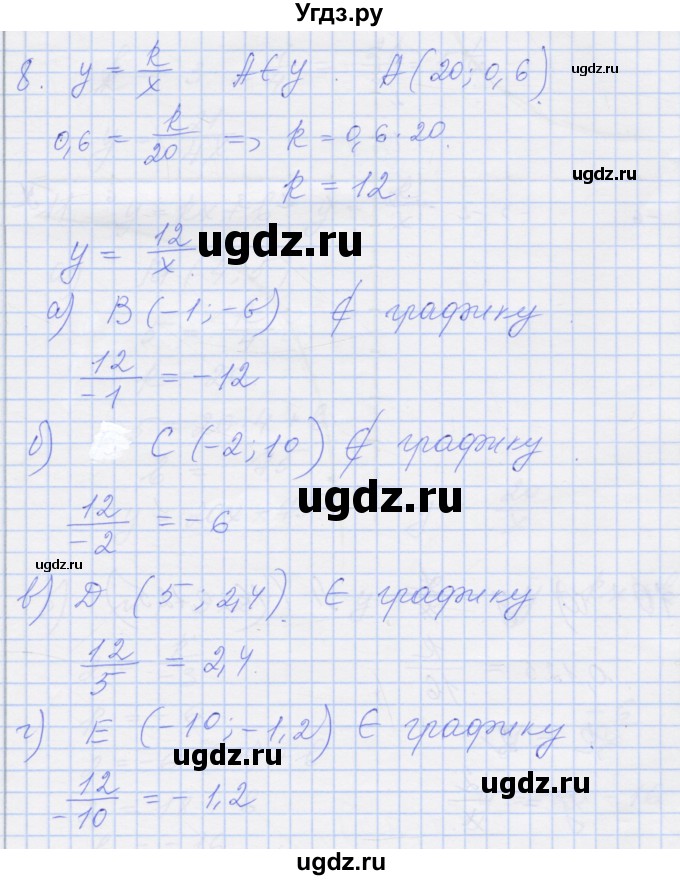 Угдз.ру
8. y = k/x   A ∈ y .   A (20; 0,6)
0,6 = k/20 => k = 0,6 · 20.
k = 12.
y = 12/x.
а) B (-1; -6) ∉ графику.
12/-1 = -12
б) C (-2; 10) ∉ графику.
12/-2 = -6
в) D (5; 2,4) ∈ графику.
12/5 = 2,4.
г) E (-10; -1,2) ∈ графику.
12/-10 = -1,2
ugdz.ru
ugdz.ru
ugdz.ru
ugdz.ru
ugdz.ru
ugdz.ru
ugdz.ru
ugdz.ru
ugdz.ru
ugdz.ru